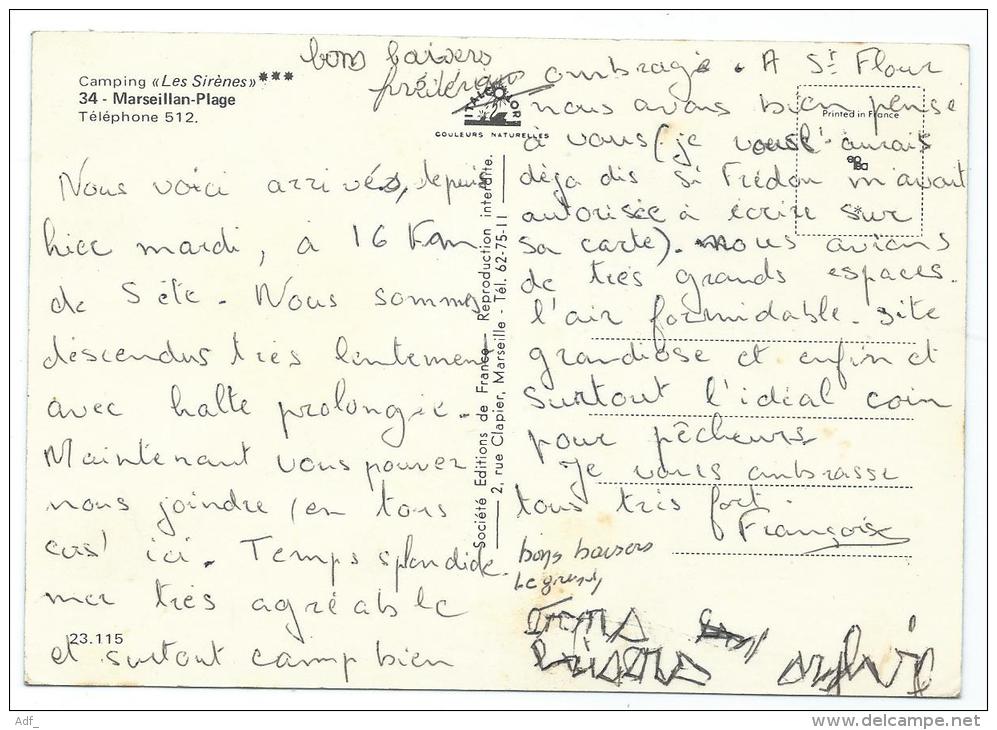 Camping «Les Sirènes» ***
34 - Marseillan-Plage
Téléphone 512.
bons baisers
frédérique
ITALCOLOR
COULEURS NATURELLES
Printed in France
Nous voici arrivés, depuis
hier mardi, à 16 Km
de Sète. Nous sommes
descendus très lentement
avec halte prolongée.
Maintenant vous pouvez
nous joindre (en tous
cas) ici. Temps splendide.
mer très agréable
et surtout camp bien
23.115
Société Editions de France - Reproduction interdite.
2, rue Clapier, Marseille - Tél. 62-75-11
ombragé. A St Flour
nous avons bien pensé
à vous (je vous l'aurais
déjà dis si Frédou m'avait
autorisée à écrire sur
sa carte). nous avions
de très grands espaces.
l'air formidable. site
grandiose et enfin et
surtout l'idéal coin
pour pêcheurs
Je vous embrasse
tous très fort.
Françoise
bons baisers
Adf_
www.delcampe.net